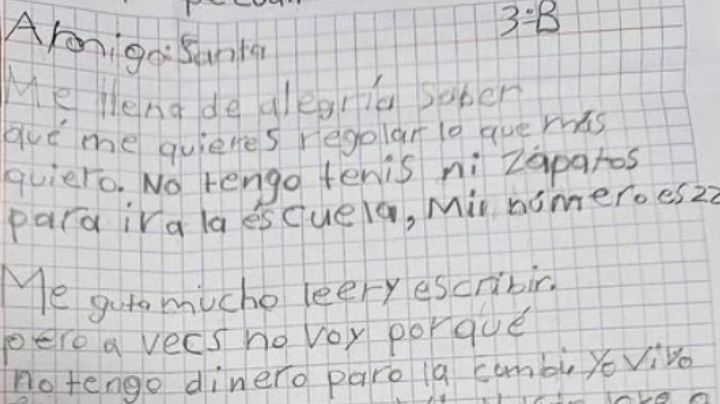 3-B
Amigo: Santa
Me llena de alegría saber
qué me quieres regalar lo que más
quiero. No tengo tenis ni zápatos
para ir a la escuela, Mii número es 22
Me guta mucho leer y escribir.
pero a vecs no voy porqué
no tengo dinero para la combi yo vivo